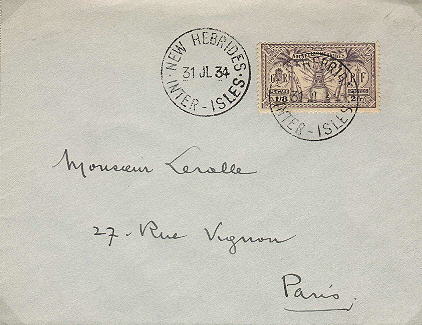 NEW HEBRIDES
31 JL 34
INTER-ISLES
HEBRID
INTER-ISLES
G R
R F
Monsieur Leralle
27 - Rue Vignon
Paris.